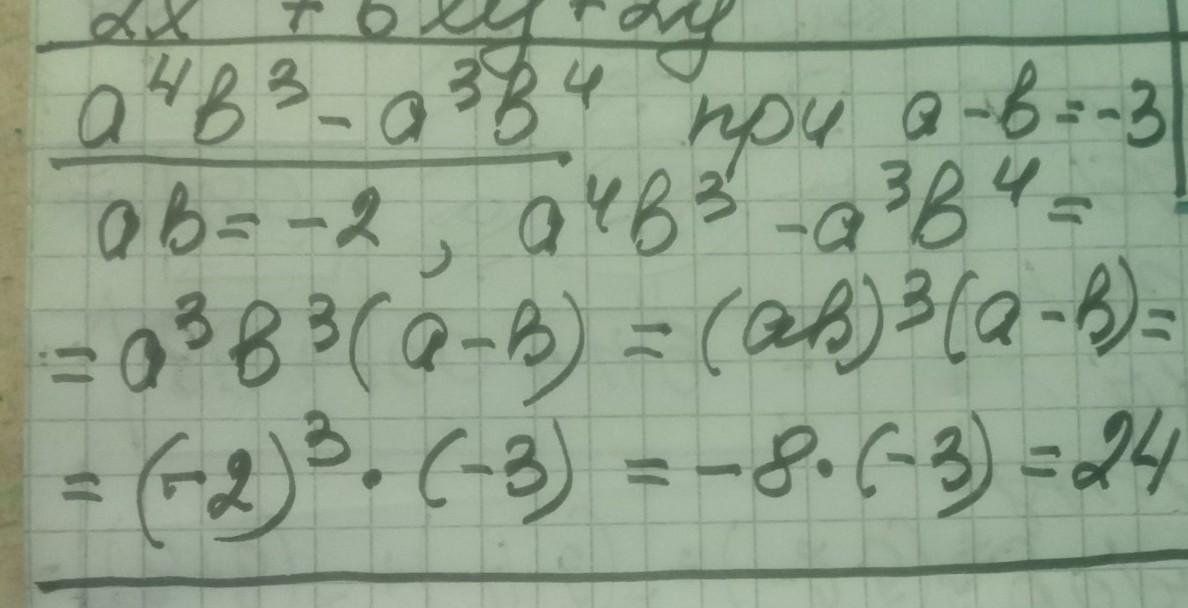 2x + 6xy + 2y
a⁴b³ - a³b⁴ при a - b = -3
ab = -2, a⁴b³ - a³b⁴ =
= a³b³(a - b) = (ab)³(a - b) =
= (-2)³ · (-3) = -8 · (-3) = 24